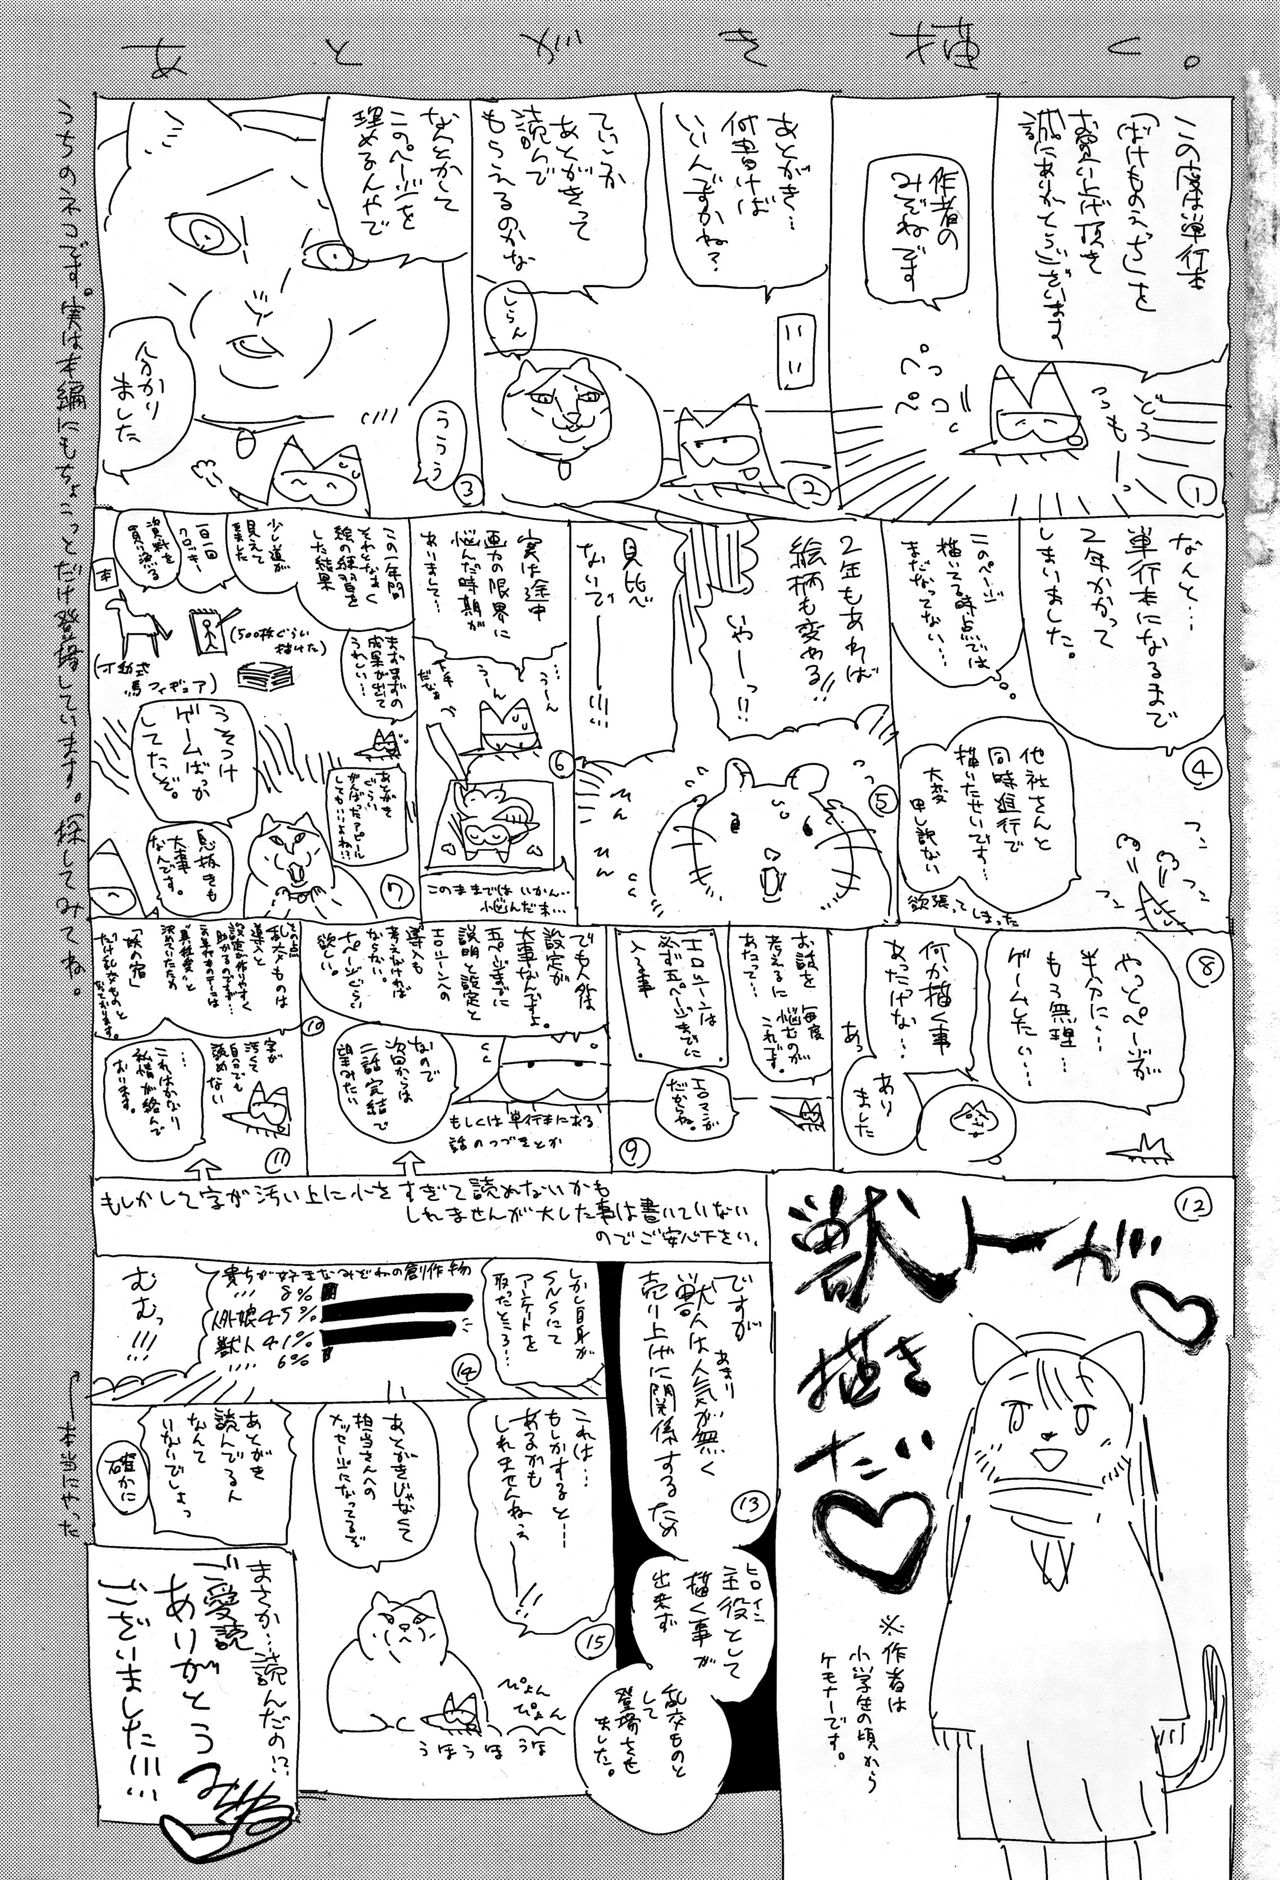 あとがき描く。
この度単行本
「ばけものえっち」を
お買い上げ頂き
誠にありがとうございます
作者の
みぞねです
どうも
ーっ
ペコ
ペコ
①
あとがき…
何書けば
いいんですかね?
ていうか
あとがきって
読んで
もらえるのかな
しらん
②
なんとかして
このページを
埋めるんやで
ううう
分かり
ました
③
なんと…
単行本になるまで
2年かかって
しまいました。
このページ
描いてる時点では
まだなってない…
他社さんと
同時進行で
描いたせいです…
大変
申し訳ない
欲張ってしまった
コン
コン
④
2年もあれば
絵柄も変わる!!
いやーっ!!
見比べ
ないでーー!!!
ひん
ひん
⑤
実は途中
画力の限界に
悩んだ時期が
ありまして…
うーん
うーん
下手
だなぁ
このままではいかん…
悩んだ末…
⑥
この一年間
それとなく
絵の練習を
した結果
少し道が
見えて
来ました
一日一回
クロッキー
資料を
買い漁る
本
(500枚ぐらい
描けた)
(可動式
馬フィギュア)
まずまずの
成果が出て
うれしい…
うそつけ
ゲームばっか
してたぞ。
あとがき
ぐらい
がんばったアピール
してもいいよね!?
息抜きも
大事
なんです。
⑦
⑧
やっとページが
半分に…
もう無理…
ゲームしたい…
何か描く事
あったかな…
あっ
あり
ました
お話を
考えるに
あたって…
毎度
悩むのが
これです。
エロシーンは
必ず五ページまでに
入る事
エロマンガ
だからね。
⑨
でも人外は
設定が
大事なんですよ。
五ページまでに
説明と設定と
エロシーンへの
導入も
考えなければ
ならない。
十ページぐらい
欲しい。
なので
次回からは
二話完結で
望みたい
もしくは単行本にある
話のつづきとか
⑩
その点
乱交ものは
導入と
設定が作りやすく
助かるのですが…
この単行本のテーマは
「異種愛」と
決めていたため
「妖の宿」
だけ乱交ものと
なっております。
字が
汚くて
自分でも
読めない
…
これはかなり
私情が絡んで
おります。
⑪
もしかして字が汚い上に小さすぎて読めないかも
しれませんが大した事は書いていない
のでご安心下さい。
⑫
獣人が
描き
たい
※作者は
小学生の頃から
ケモナーです。
ですが
獣人はあまり
人気が無く
売り上げに関係するため
⑬
ヒロイン
主役として
描く事が
出来ず
乱交ものと
して
登場させ
ました。
しかし自身が
SNSにて
アンケートを
取ったところ…
貴方が好きなみぞねの創作物
8%
人外娘45%
獣人41%
6%
むむっ!!!
⑭
←本当にやった
これは…
もしかすると…
あるかも
しれませんねぇ
ーー!!
あとがきじゃなくて
担当さんへの
メッセージになってるぞ
ぴょん
ぴょん
うほうほ
うほ
⑮
あとがき
読んでる人
なんて
いないでしょっ
確かに
まさか…読んだの!?
ご愛読
ありがとう
ございました!!!
みぞね
うちのネコです。実は本編にもちょこっとだけ登場しています。探してみてね。